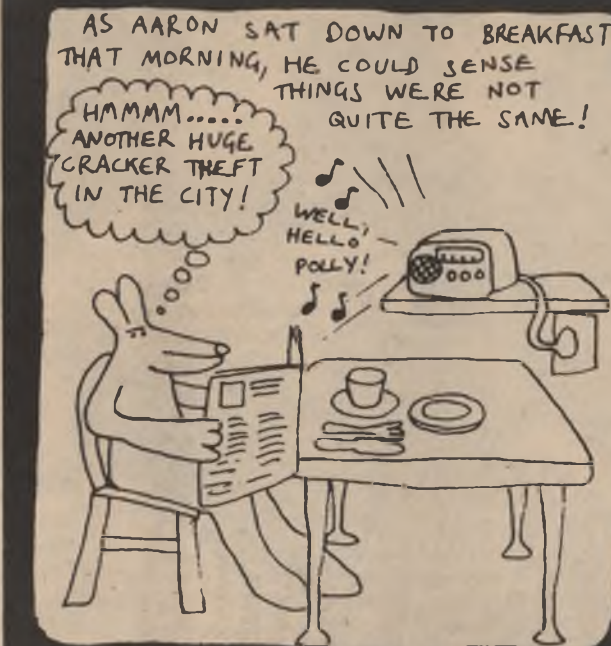 AS AARON SAT DOWN TO BREAKFAST
THAT MORNING, HE COULD SENSE
THINGS WERE NOT
QUITE THE SAME!
HMMMM.....
ANOTHER HUGE
CRACKER THEFT
IN THE CITY!
WELL,
HELLO
POLLY!